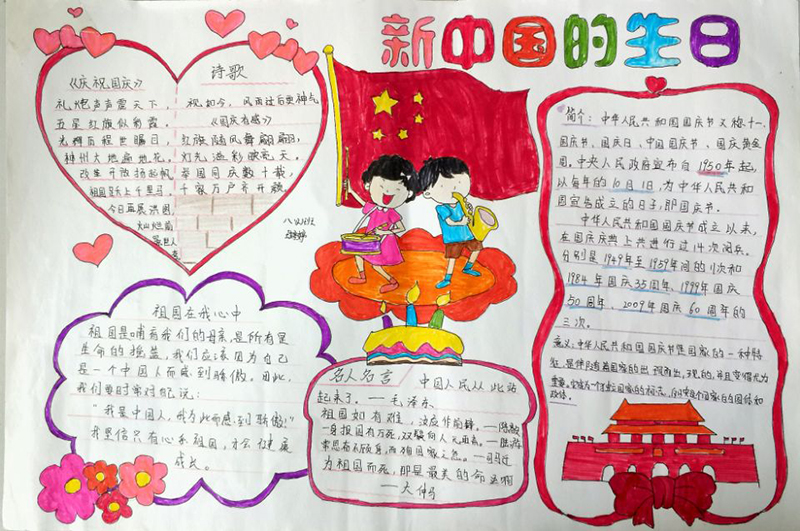 新中国的生日
诗歌
《庆祝国庆》
礼炮声声震天下,
五星红旗似彩霞,
光辉历程世瞩目,
神州大地遍地花。
改革开放扬起帆,
祖国跃上千里马,
今日蓝展洪图,
灿烂前
景世人
祝如今,风雨过后更神气
《国庆有感》
红旗随风舞翩翩,
灯光溢彩映亮天。
举国同庆数十载,
千家万户齐开颜。
祖国在我心中
祖国是哺育我们的母亲,是所有星
生命的摇篮,我们应该因为自己
是一个中国人而感到骄傲。因此,
我们要时常对自己说:
“我是中国人,我为此而感到骄傲!”
我坚信只有心系祖国,才会健康
成长。
名人名言
中国人民从此站
起来了。—毛泽东
祖国如有难,汝应作前锋。—陈毅
一身报国有万死,双鬓向人无再青。—陆游
常思奋不顾身,而殉国家之急。—司马迁
为祖国而死,那是最美的命运啊
—大仲马
简介:中华人民共和国国庆节又称十一、
国庆节、国庆日、中国国庆节、国庆黄金
周。中央人民政府宣布自1950年起,
以每年的10月1日,为中华人民共和
国宣告成立的日子,即国庆节。
中华人民共和国国庆节成立以来,
在国庆庆典上共进行过14次阅兵。
分别是1949年至1959年间的11次和
1984年国庆35周年、1999年国庆
50周年、2009年国庆60周年的
三次。
意义:中华人民共和国国庆节是国家的一种特
征,是伴随着国家的出现而出现的,并且变得尤为
重要。
政体。